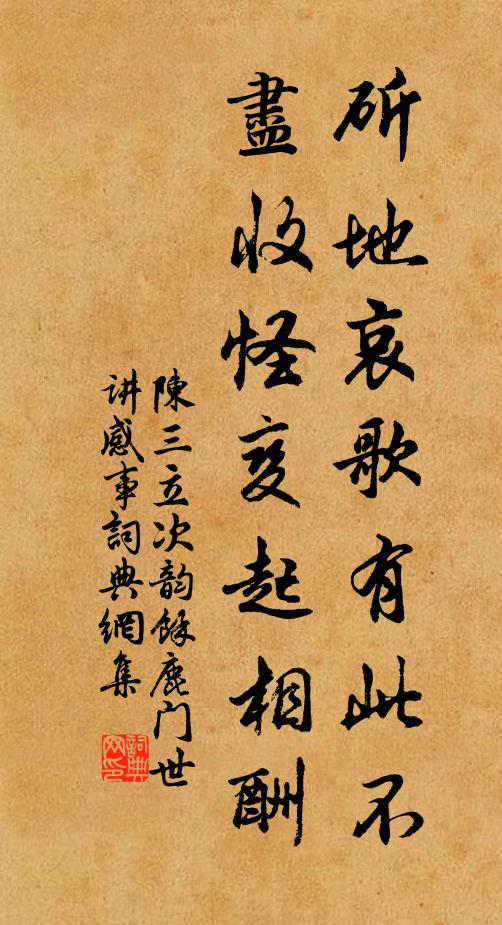 斫地哀歌有此不
盡收怪变起相酬
陳三立次韵餘鹿门世
讲感事詞典網集
詞典
网印